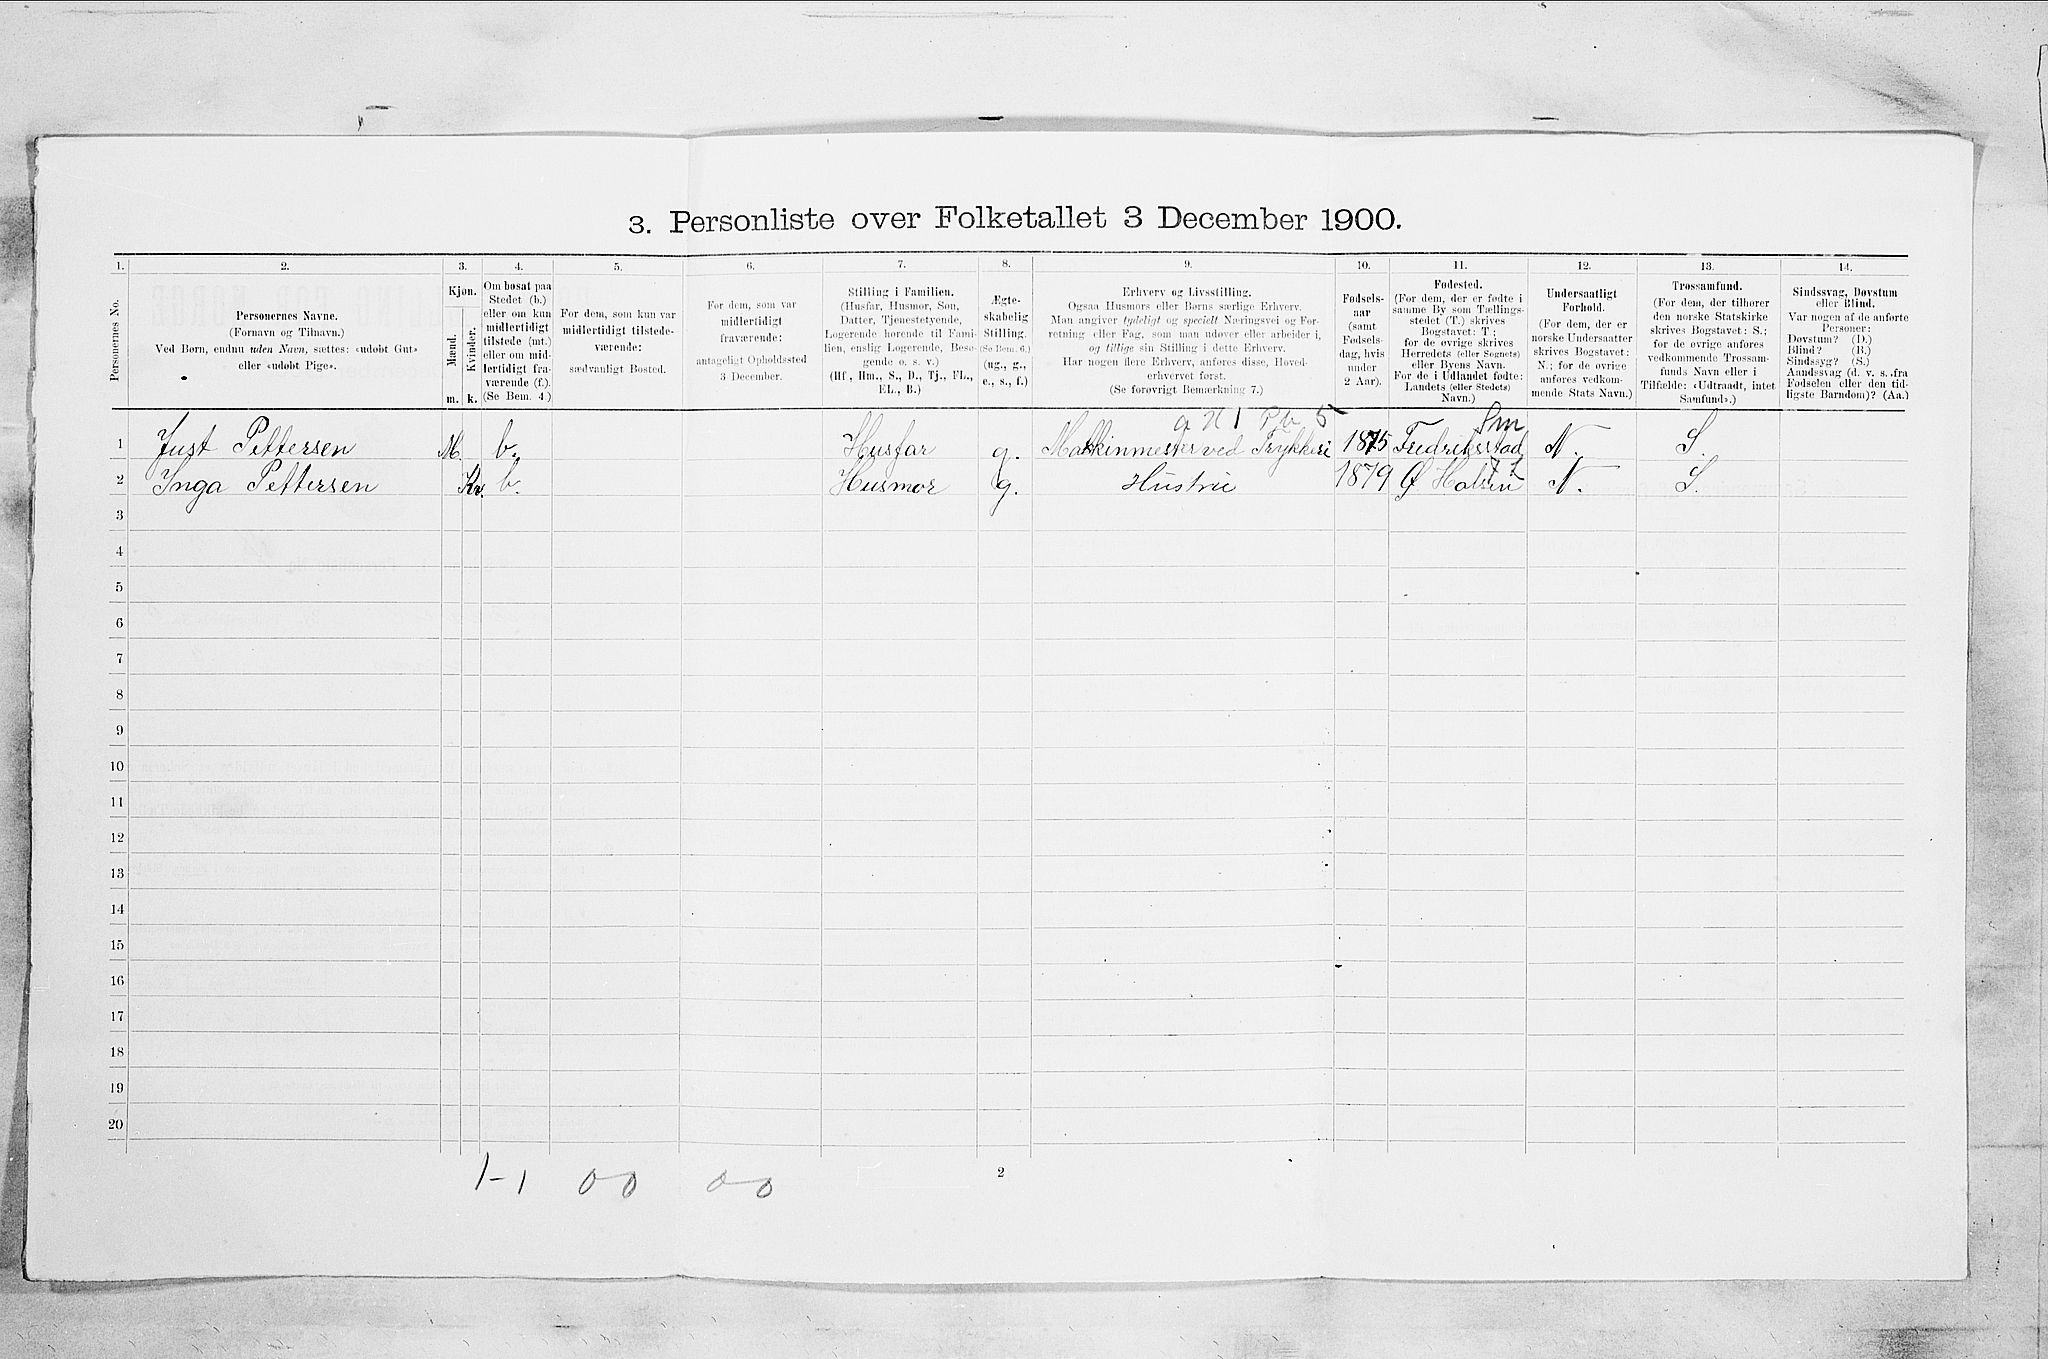 3. Personliste over Folketallet 3 December 1900.
1. 2. 3. 4. 5. 6. 7. 8. 9. 10. 11. 12. 13. 14.
Personernes No.
Personernes Navne.
(Fornavn og Tilnavn.)
Ved Børn, endnu uden Navn, sættes: «udøbt Gut»
eller «udøbt Pige».
Kjøn.
Mænd.
Kvinder.
m. k.
Om bosat paa
Stedet (b.)
eller om kun
midlertidigt
tilstede (mt.)
eller om mid-
lertidigt fra-
værende (f.).
(Se Bem. 4.)
For dem, som kun var
midlertidigt tilstede-
værende:
sædvanligt Bosted.
For dem, som var
midlertidigt
fraværende:
antageligt Opholdssted
3 December.
Stilling i Familien.
(Husfar, Husmor, Søn,
Datter, Tjenestetyende,
Logerende hørende til Fami-
lien, enslig Logerende, Besø-
gende o. s. v.)
(Hf., Hm., S., D., Tj., FL.,
EL., B.)
Ægte-
skabelig
Stilling.
(Se Bem. 6.)
(ug., g.,
e., s., f.)
Erhverv og Livsstilling.
Ogsaa Husmors eller Børns særlige Erhverv.
Man angiver tydeligt og specielt Næringsvei og For-
retning eller Fag, som man udøver eller arbeider i,
og tillige sin Stilling i dette Erhverv.
Har nogen flere Erhverv, anføres disse, Hoved-
erhvervet først.
(Se forøvrigt Bemærkning 7.)
Fødsels-
aar
(samt
Fødsels-
dag, hvis
under
2 Aar).
Fødested.
(For dem, der er fødte i
samme By som Tællings-
stedet (T.) skrives
Bogstavet: T;
for de øvrige skrives
Herredets (eller Sognets)
eller Byens Navn.
For de i Udlandet fødte:
Landets (eller Stedets)
Navn.)
Undersaatligt
Forhold.
(For dem, der er
norske Undersaatter
skrives Bogstavet:
N.; for de øvrige
anføres vedkom-
mende Stats Navn.)
Trossamfund.
(For dem, der tilhører
den norske Statskirke
skrives Bogstavet: S.;
for de øvrige anføres
vedkommende Trossam-
funds Navn eller i
Tilfælde: «Udtraadt, intet
Samfund».)
Sindssvag, Døvstum
eller Blind.
Var nogen af de anførte
Personer:
Døvstum? (D.)
Blind? (B.)
Sindssyg? (S.)
Aandssvag (d. v. s. fra
Fødselen eller den tid-
ligste Barndom)? (Aa.)
1 Just Pettersen M. b. Husfar g. Maskinmester ved Trykkeri 1875 Fredrikstad N. S.
2 Inga Pettersen Kv. b. Husmor g. Hustru 1879 Ø N. S.
3
4
5
6
7
8
9
10
11
12
13
14
15
16
17
18
19
20
1-1 00 00
2